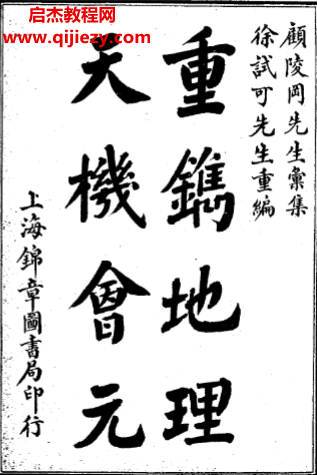 启杰教程网
www.qijiezy.com
顧陵岡先生彙集
徐試可先生重編
重鐫地理
天機會元
上海錦章圖書局印行